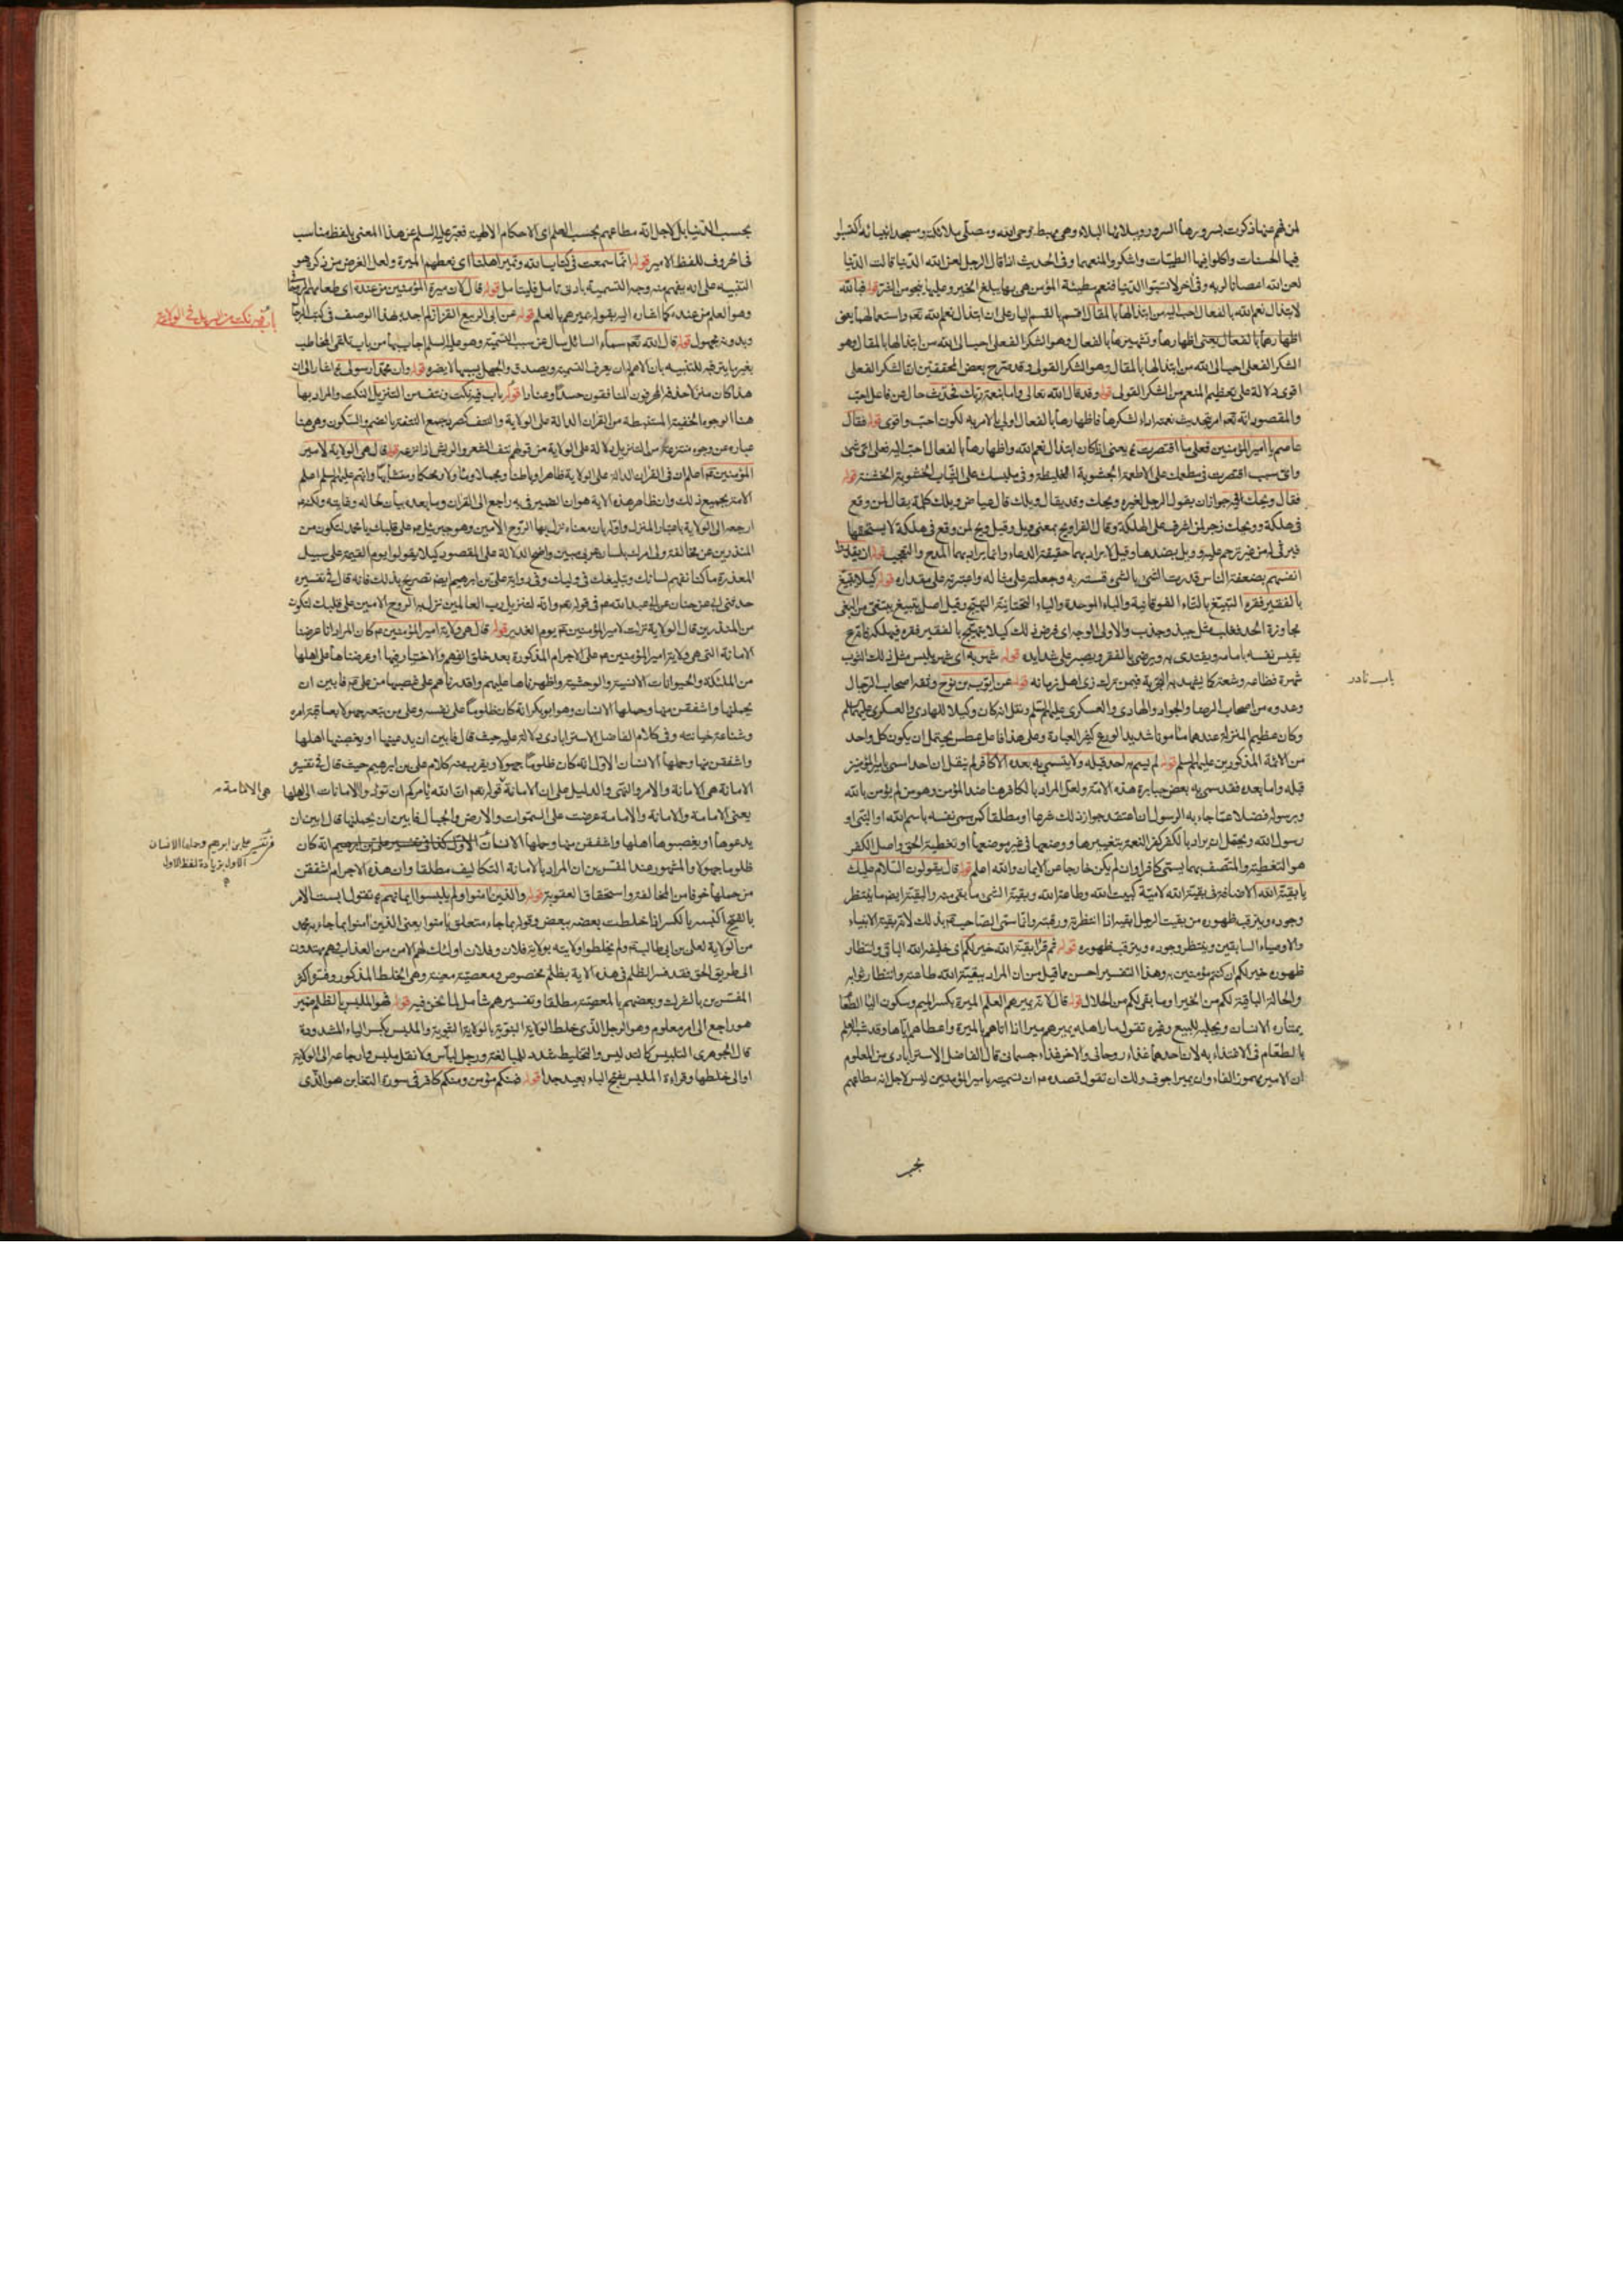 لمن فهم عنها ذكرت بسرورها السرور وببلائها البلاء وهي مهبط وحى الله ومصلى ملائكته ومسجد انبيائه اكتسبوا
فيها الحسنات واكلوا فيها الطيبات واشكروا المنعم وفى الحديث اذا قال الرجل لعن الله الدنيا قالت الدنيا
لعن الله اعصانا لربه وفى آخر لا تسبوا الدنيا فنعم مطية المؤمن هى بها يبلغ الخير وعليها ينجو من الشر قوله فبالله
لابتذال نعم الله بالفعال احب اليه من ابتذالها بالمقال اقسم بالقسم البار على ان ابتذال نعم الله تعم واستعمالها يعنى
اظهارها بالفعال وهو الشكر الفعلى احب الى الله من ابتذالها بالمقال وهو
الشكر الفعلى احب الى الله من ابتذالها بالمقال وهو الشكر القولى وقد صرح بعض المحققين ان الشكر الفعلى
اقوى دلالة على تعظيم المنعم من الشكر القولى قوله وقد قال الله تعالى واما بنعمة ربك فحدث حال عن فاعل احب
والمقصود انه تعم امر بتحديث نعمته اداء لشكرها فاظهارها بالفعال اولى بالامر به لكونه احب واقوى قوله فقال
عاصم يا امير المؤمنين فعلى ما اقتصرت يعنى اذا كان ابتذال نعم الله واظهارها بالفعال احب اليه فعلى اى شئ
واى سبب اقتصرت فى مطعمك على الاطعمة الجشوبة الغليظة وفى ملبسك على الثياب الخشونة الخشنة قوله
فقال ويحك فيه جواز ان يقول الرجل لغيره ويحك وقد يقال ويلك قال عياض ويلك كلمة يقال لمن وقع
فى هلكة وويحك زجر لمن اشرف على الهلكة وقال الفراء ويح بمعنى ويل وقيل ويح لمن وقع فى هلكة لا يستحقها
فيرثى له من غير ترحم عليه وويل بضدها وقيل لا يراد بهما حقيقة الدعاء وانما يراد بهما المدح والتعجب قوله ان يقدروا
انفسهم بضعفة الناس قدرت الشئ بالشئ قسته به وجعلته على مثاله واعتبرته على مقداره قوله كيلا يتبيغ
بالفقير فقره التبيغ بالتاء الفوقانية والباء الموحدة والياء التحتانية التهيج وقيل اصل يتبيغ يتبغى من البغى
مجاوزة الحد فقلب مثل جبذ وجذب والاولى الوجه اى فرض ذلك كيلا يتهيج بالفقير فقره فيهلكه
يقيس نفسه بامامه ويقتدى به ويرضى بالفقر ويصبر على شدايده قوله شهر به اى شهر بلبس مثل ذلك الثوب
شهرة فظاعة وشنعة كما يشهد به التجربة فيمن ترك زى اهل زمانه قوله عن ايوب بن نوح وثقه اصحاب الرجال
وعدوه من اصحاب الرضا والجواد والهادى والعسكرى عليهم السلم ونقل انه كان وكيلا للهادى والعسكرى عليهما السلم
وكان عظيم المنزلة عندهما مأمونا شديد الورع كثير العبادة وعلى هذا فاعل عطس يحتمل ان يكون كل واحد
من الائمة المذكورين عليهم السلم قوله لم يسم به احد قبله ولا يتسمى به بعده الا كافر لم ينقل ان احدا سمى بامير المؤمنين
قبله واما بعده فقد سمى به بعض جبابرة هذه الامة ولعل المراد بالكافر هنا ضد المؤمن وهو من لم يؤمن بالله
وبرسوله فضلا عما جاء به الرسول ان اعتقد جواز ذلك شرعا او مطلقا كمن سمى نفسه باسم الله او النبى او
رسول الله ويحتمل ان يراد بالكفر كفر النعمة بتغييرها ووضعها فى غير موضعها او تغطية الحق واصل الكفر
هو التغطية والمتصف بهما يسمى كافرا وان لم يكن خارجا عن الايمان والله اعلم قوله قال يقولون السلام عليك
يا بقية الله الاضافة فى بقية الله لامية كبيت الله وطاعة الله وبقية الشئ ما بقى منه والبقية ايضم ما ينتظر
وجوده ويترقب ظهوره من بقيت الرجل ابقيه اذا انتظرته ورقبته وانما سمى الصاحب ع بذلك لانه بقية الانبياء
والاوصياء السابقين وينتظر وجوده ويترقب ظهوره قوله ثم قرأ بقية الله خير لكم اى خليفة الله الباقى وانتظار
ظهوره خير لكم ان كنتم مؤمنين به وهذا التفسير احسن مما قيل من ان المراد ببقية الله طاعته وانتظار ثوابه
والحالة الباقية لكم من الخير او ما بقى لكم من الحلال قوله قال لانه يميرهم العلم الميرة بكسر الميم وسكون الياء الطعام
يمتاره الانسان ويجلبه للبيع وغيره تقول مار اهله يميرهم ميرا اذا اتاهم بالميرة واعطاهم اياها وقد شبه العلم
بالطعام فى الاغتذاء به لان احدهما غذاء روحانى والاخر غذاء جسمانى قال الفاضل الاسترابادى من المعلوم
ان الامير مهموز الفاء وان يمير اجوف ولك ان تقول قصده ع ان تسمية يا امير المؤمنين ليس لاجل انه مطاعهم
بحسب
باب نادر
بحسب الدنيا بل لاجل انه مطاعهم بحسب العلم اى الاحكام الالهية فعبر عليه السلم عن هذا المعنى بلفظ مناسب
فى الحروف للفظ الامير قوله اما سمعت فى كتاب الله ونمير اهلنا اى نعطيهم الميرة ولعل الغرض من ذكره هو
التنبيه على انه يفهم منه وجه التسمية بادنى تأمل فليتأمل قوله قال لان ميرة المؤمنين من عنده اى طعامهم الروحانى
وهو العلم من عنده كما اشار اليه بقوله يميرهم بالعلم قوله عن ابى الربيع القزاز لم اجده بهذا الوصف فى كتب الرجال
وبدونه مجهول قوله قال الله تعم سماه السائل سال عن سبب التسمية وهو عليه السلم اجاب بها من باب تلقى المخاطب
بغير ما يترقبه للتنبيه بان الاهم ان يعرف التسمية ويصدق والجهل بسببها لا يضره قوله وان محمدا رسولى اشار الى ان
هذا كان منزلا حذفه المحرفون المنافقون حسدا وعنادا قوله باب فيه نكت ونتف من التنزيل النكت والمراد بها
هنا الوجوه الخفية المستنبطة من القران الدالة على الولاية والنتف كصرد جمع النتفة بالضم والسكون وهى هنا
عبارة عن وجوه منتزعة من التنزيل دلالة على الولاية من قولهم نتف الشعر والريش اذا نزعه قوله قال هى الولاية لامير
المؤمنين ع اعلم ان فى القران الدالة على الولاية ظاهرا وباطنا ومجملا ومأولا ومحكما ومتشابها وانهم عليهم السلم اعلم
الامة بجميع ذلك وان ظاهر هذه الاية هو ان الضمير فى به راجع الى القران وما بعده بيان لحاله وغايته ولكنه ع
ارجعه الى الولاية باعتبار المنزل وافاد بأن معناه نزل بها الروح الامين وهو جبرئيل ع على قلبك يا محمد لتكون من
المنذرين عن مخالفة ولى امرك بلسان عربى مبين واضح الدلالة على المقصود كيلا يقولوا يوم القيمة على سبيل
المعذرة ما كنا نفهم لسانك وتبليغك فى وليك وفى رواية على بن ابرهيم ايضم تصريح بذلك فانه قال فى تفسيره
حدثنى ابى عن حنان عن ابى عبد الله ع فى قوله تعم وانه لتنزيل رب العالمين نزل به الروح الامين على قلبك لتكون
من المنذرين قال الولاية نزلت لامير المؤمنين ع يوم الغدير قوله قال هى ولاية امير المؤمنين ع كان المراد انا عرضنا
الامانة التى هى ولاية امير المؤمنين ع على الاجرام المذكورة بعد خلق الفهم والاختيار فيها او عرضناها على اهلها
من الملئكة والحيوانات الانسية والوحشية واظهرناها عليهم واقدرناهم على غصبها من على ع فابين ان
يحملنها واشفقن منها وحملها الانسان وهو ابوبكر انه كان ظلوما على نفسه وعلى من تبعه جهولا بعاقبة امره
وشناعة خيانته وفى كلام الفاضل الاسترابادى دلالة عليه حيث قال فابين ان يدعينها او يغصبنها اهلها
واشفقن منها وحملها الانسان الاول انه كان ظلوما جهولا ويقرب منه كلام على بن ابرهيم حيث قال فى تفسيره
الامانة هى الامانة والامر والنهى والدليل على ان الامانة قوله تعم ان الله يأمركم ان تؤدوا الامانات الى اهلها
يعنى الامامة والامانة والامامة عرضت على السموات والارض والجبال فابين ان يحملنها قال ابين ان
يدعوها او يغصبوها اهلها واشفقن منها وحملها الانسان الاول كذا فى تفسير على بن ابرهيم انه كان
ظلوما جهولا والمشهور عند المفسرين ان المراد بالامانة التكاليف مطلقا وان هذه الاجرام اشفقن
من حملها خوفا من المخالفة واستحقاق العقوبة قوله والذين امنوا ولم يلبسوا ايمانهم تقول لبست الامر
بالفتح البسه بالكسر اذا خلطت بعضه ببعض وقوله بما جاء متعلق بامنوا يعنى الذين امنوا بما جاء به محمد
من الولاية لعلى بن ابى طالب ع ولم يخلطوا ولايته بولاية فلان وفلان اولئك لهم الامن من العذاب وهم مهتدون
الى طريق الحق فقد فسر الظلم فى هذه الاية بظلم مخصوص ومعصية معينة وهى الخلط المذكور وفسره اكثر
المفسرين بالشرك وبعضهم بالمعصية مطلقا وتفسيرهم شامل لما نحن فيه قوله فهو الملبس بالظلم ضمير
هو راجع الى امر معلوم وهو الرجل الذى خلط الولاية النبوية بالولاية والملبس بكسر الباء المشددة
قال الجوهرى التلبيس كالتدليس والتخليط شدد للمبالغة ورجل لباس ولا تقل ملبس وارجاعه الى الولاية
او الى خلطها وقراءة الملبس بفتح الباء بعيد جدا قوله فمنكم مؤمن ومنكم كافر فى سورة التغابن هو الذى
باب فيه نكت من التنزيل فى الولاية
هى الامامة
فى تفسير على بن ابرهيم وحملها الانسان
الاول بزيادة لفظ الاول